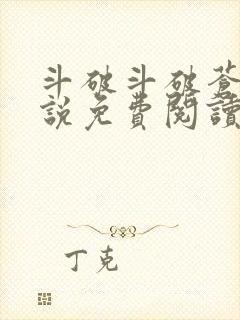 斗破斗破蒼
說免費閱讀
丁克